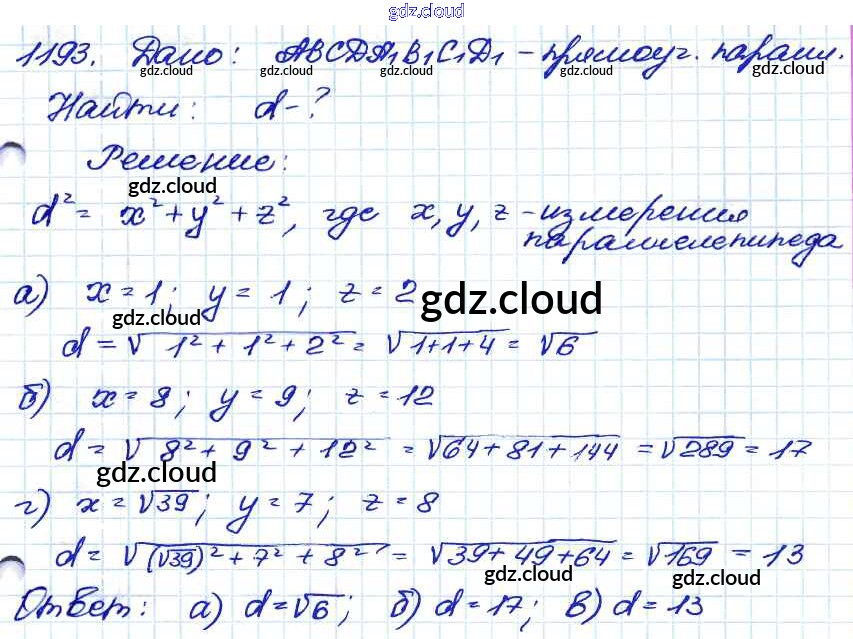 gdz.cloud
1193. Дано: ABCDA₁B₁C₁D₁ - прямоуг. паралл.
gdz.cloud gdz.cloud gdz.cloud gdz.cloud
Найти: d-?
Решение:
gdz.cloud
d² = x² + y² + z², где x, y, z - измерения
параллелепипеда
а) x = 1; y = 1; z = 2
gdz.cloud gdz.cloud
d = √1² + 1² + 2² = √1+1+4 = √6
б) x = 8; y = 9; z = 12
d = √8² + 9² + 12² = √64 + 81 + 144 = √289 = 17
gdz.cloud gdz.cloud
г) x = √39; y = 7; z = 8
d = √(√39)² + 7² + 8² = √39 + 49 + 64 = √169 = 13
gdz.cloud gdz.cloud
Ответ: а) d = √6; б) d = 17; в) d = 13
gdz.cloud